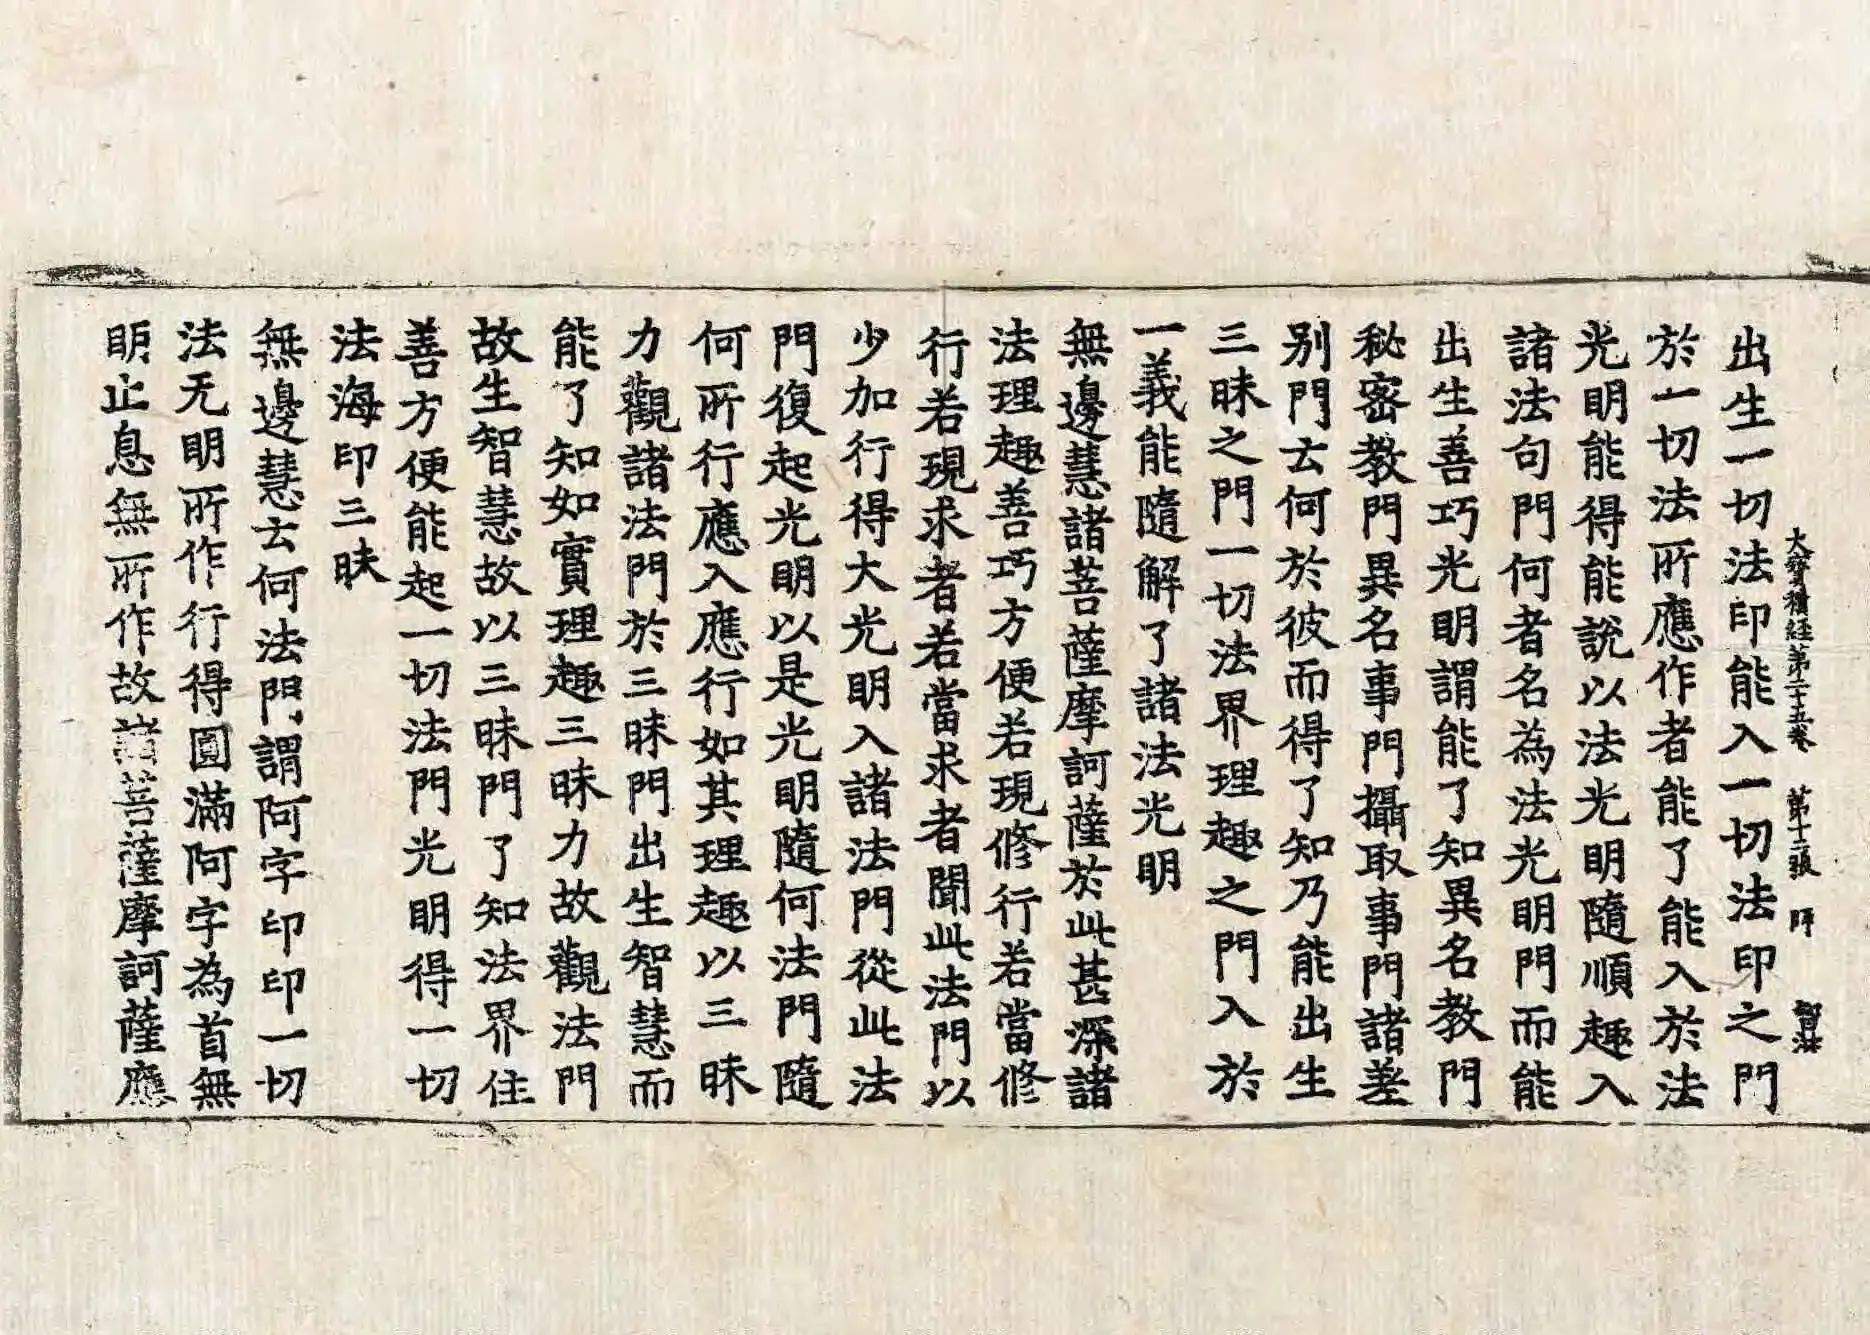 大寳積経第二十五卷 第十二張
出生一切法印能入一切法印之門
於一切法所應作者能了能入於法
光明能得能說以法光明隨順趣入
諸法句門何者名為法光明門而能
出生善巧光明謂能了知異名教門
秘密教門異名事門攝取事門諸差
别門云何於彼而得了知乃能出生
三昧之門一切法界理趣之門入於
一義能隨解了諸法光明
無邊慧諸菩薩摩訶薩於此甚深諸
法理趣善巧方便若現修行若當修
行若現求者若當求者聞此法門以
少加行得大光明入諸法門從此法
門復起光明以是光明隨何法門隨
何所行應入應行如其理趣以三昧
力觀諸法門於三昧門出生智慧而
能了知如實理趣三昧力故觀法門
故生智慧故以三昧門了知法界住
善方便能起一切法門光明得一切
法海印三昧
無邊慧云何法門謂阿字印印一切
法无明所作行得圓滿阿字為首無
明止息無所作故諸菩薩摩訶薩應